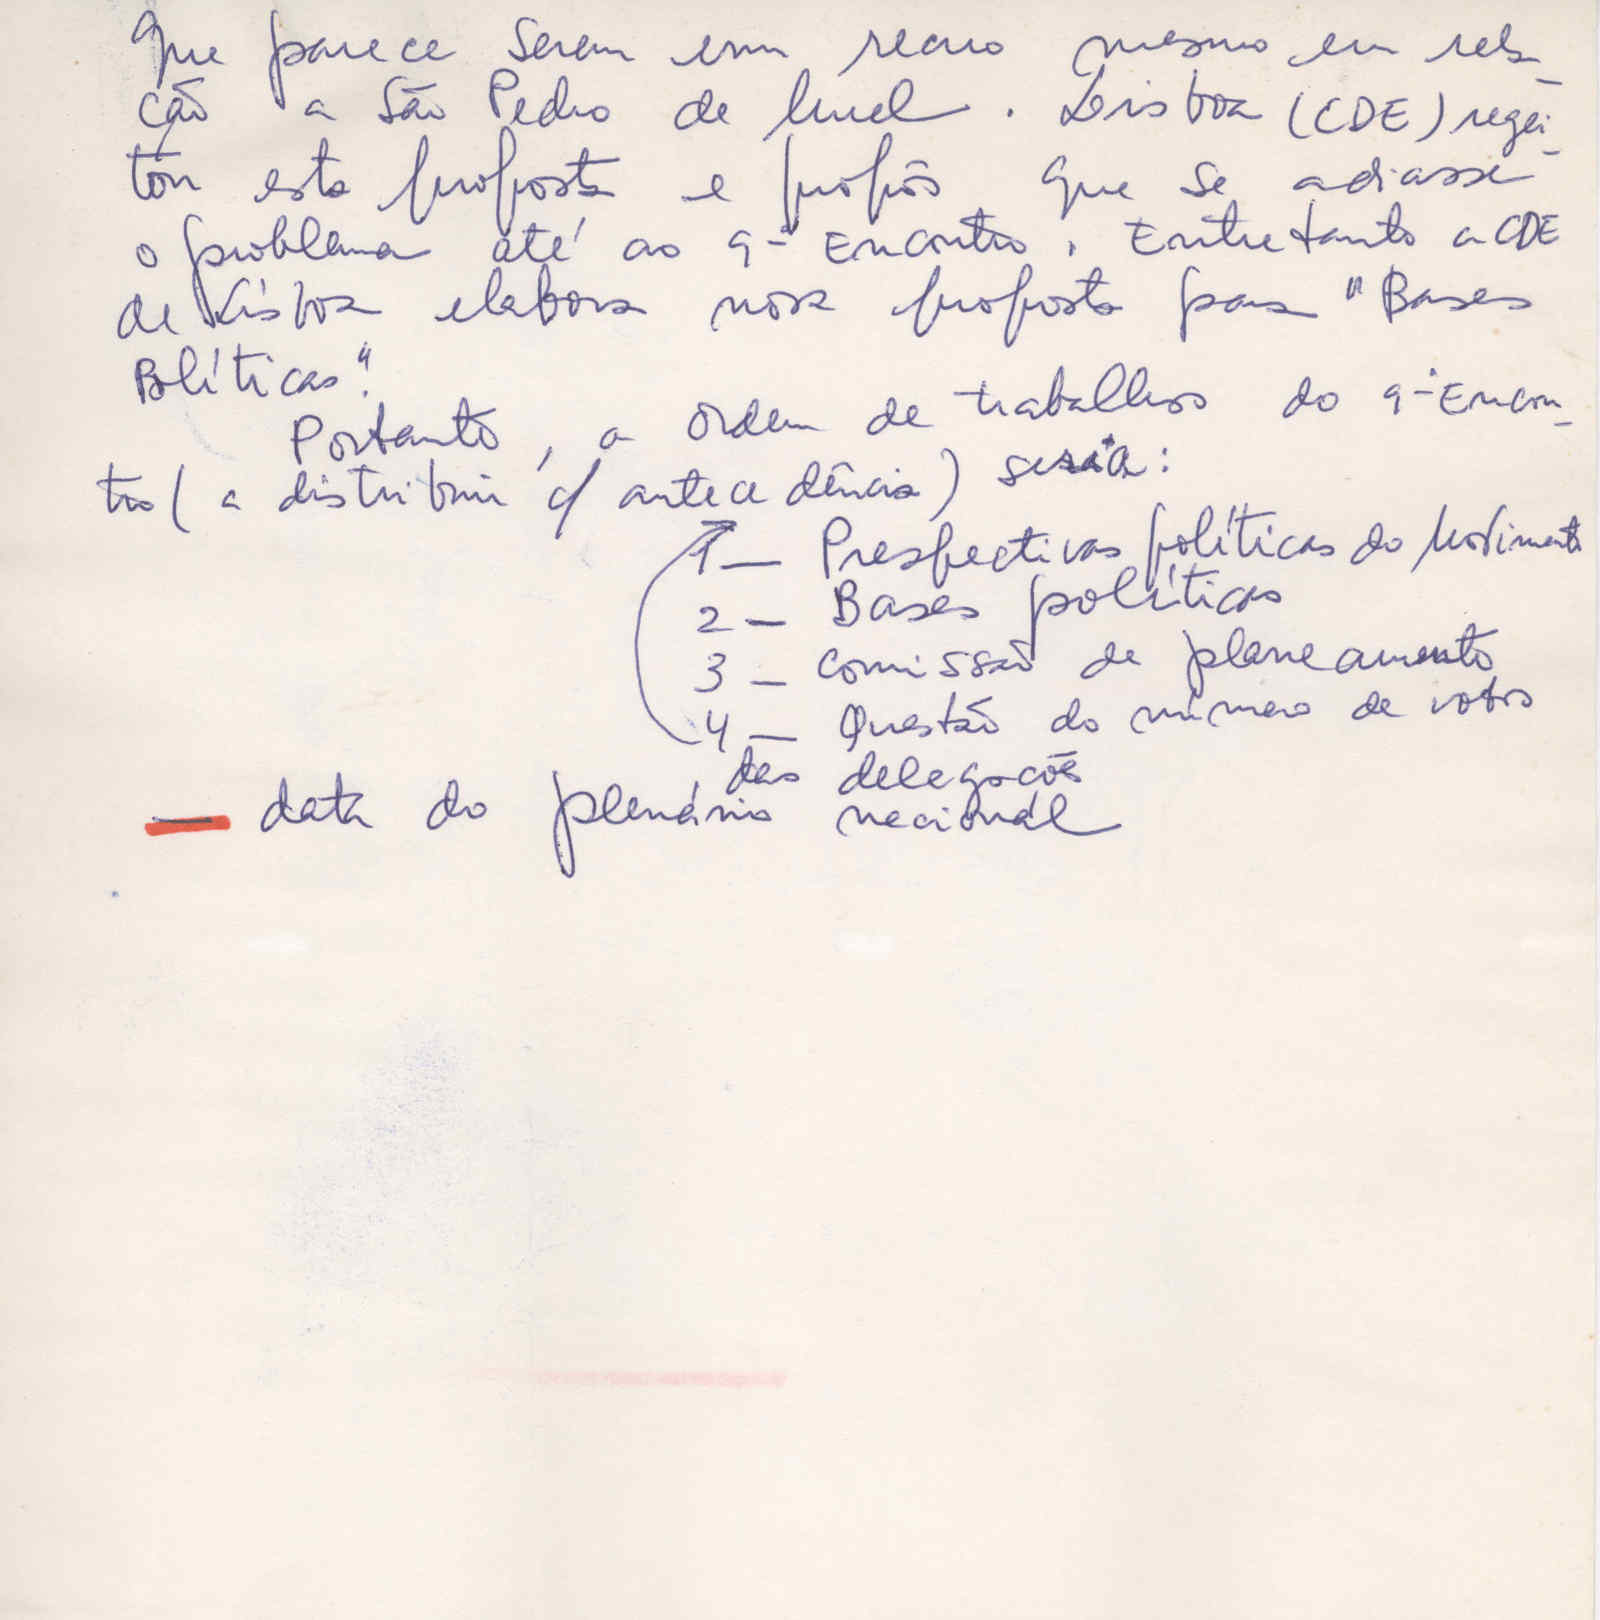 que parece serem um recuo mesmo em rela-
ção a São Pedro de Muel. Lisboa (CDE) regei-
tou esta proposta e propôs que se adiasse
o problema até ao 9º Encontro. Entretanto a CDE
de Lisboa elabora nova proposta para "Bases
Políticas".
Portanto, a ordem de trabalhos do 9º Encon-
tro (a distribuir c/ antecedência) seria:
1 — Prespectivas políticas do Movimento
2 — Bases políticas
3 — Comissão de planeamento
4 — Questão do número de votos
das delegações
— data do plenário nacional